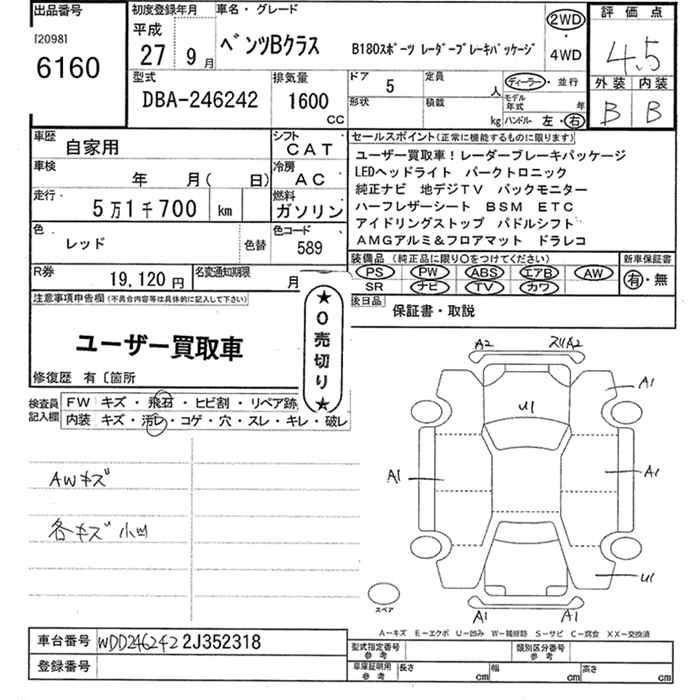 出品番号
[2098]
6160
初度登録年月
平成
27年 9月
車名・グレード
ベンツBクラス B180スポーツ レーダーブレーキパッケージ
2WD
・
4WD
評価点
4.5
外装 内装
B B
型式
DBA-246242
排気量
1600
CC
ドア
5
定員
人
形状
積載
kg
ディーラー・並行
モデル年式 年
ハンドル 左・右
車歴
自家用
シフト
CAT
車検
年 月( 日)
冷房
AC
走行
5万1千700 km
燃料
ガソリン
色
レッド
色替
色コード
589
R券
19,120円
名変通知期限
月
セールスポイント(正常に機能するものに限ります)
ユーザー買取車!レーダーブレーキパッケージ
LEDヘッドライト パークトロニック
純正ナビ 地デジTV バックモニター
ハーフレザーシート BSM ETC
アイドリングストップ パドルシフト
AMGアルミ&フロアマット ドラレコ
装備品(純正品に限り○をつけてください)
PS PW ABS エアB AW
SR ナビ TV カワ
新車保証書
有・無
後日品
保証書・取説
注意事項申告欄(不具合内容等は具体的に記入して下さい)
ユーザー買取車
修復歴 有〔箇所
★0売切り★
検査員記入欄
FW キズ・飛石・ヒビ割・リペア跡
内装 キズ・汚レ・コゲ・穴・スレ・キレ・破レ
AWキズ
各キズ小凹
A2
A2
A1
U1
A1
A1
U1
A1
A1
スペア
A-キズ E-エクボ U-凹み W-補修跡 S-サビ C-腐食 XX-交換済
車台番号
WDD2462422J352318
登録番号
型式指定番号
参考
類別区分番号
参考
車庫証明用
参考
長さ cm
幅 cm
高さ cm